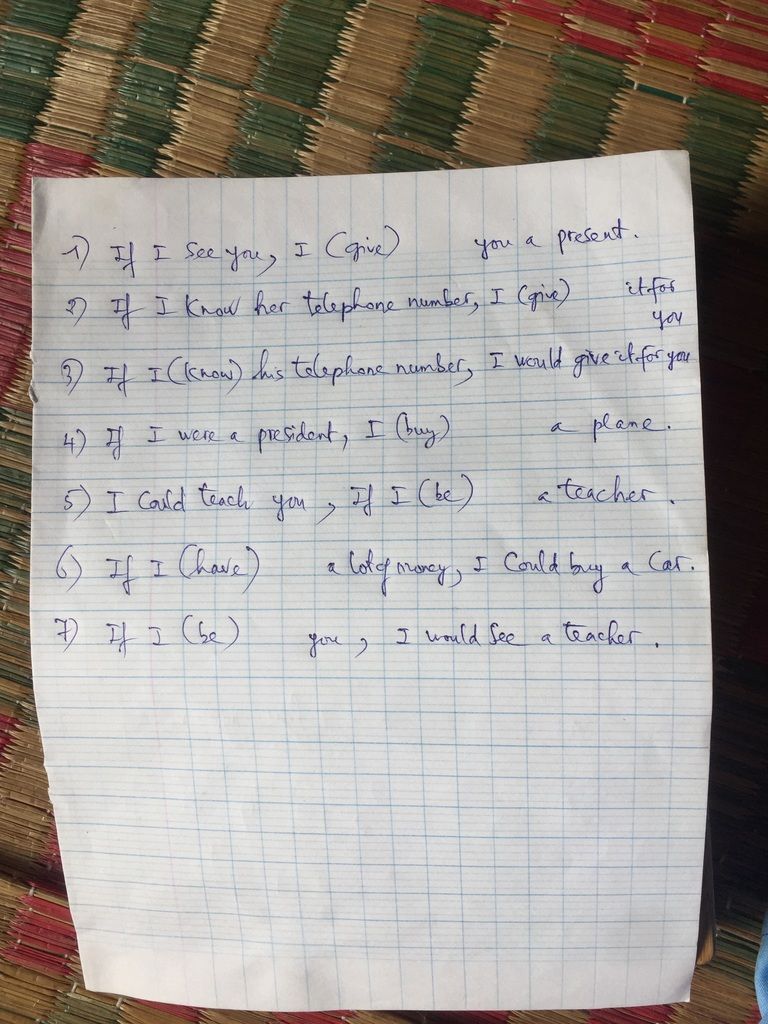 1) If I see you, I (give) you a present.
2) If I know her telephone number, I (give) it for
you
3) If I (know) his telephone number, I would give it for you
4) If I were a president, I (buy) a plane.
5) I could teach you, If I (be) a teacher.
6) If I (have) a lot of money, I could buy a car.
7) If I (be) you, I would see a teacher.